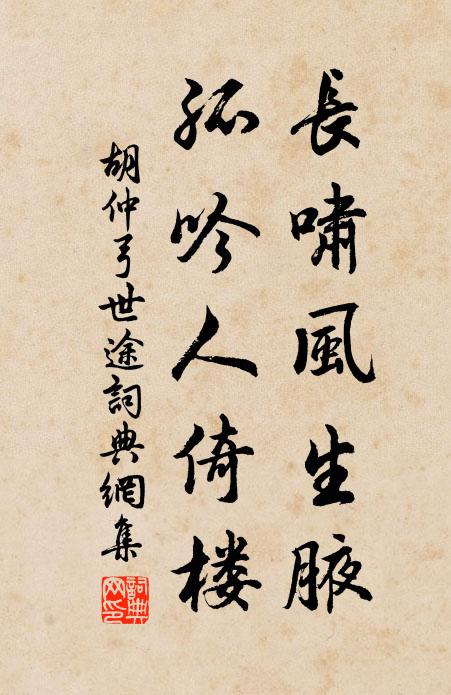 長嘯風生腋
孤吟人倚楼
胡仲弓世途詞典網集
詞典網印